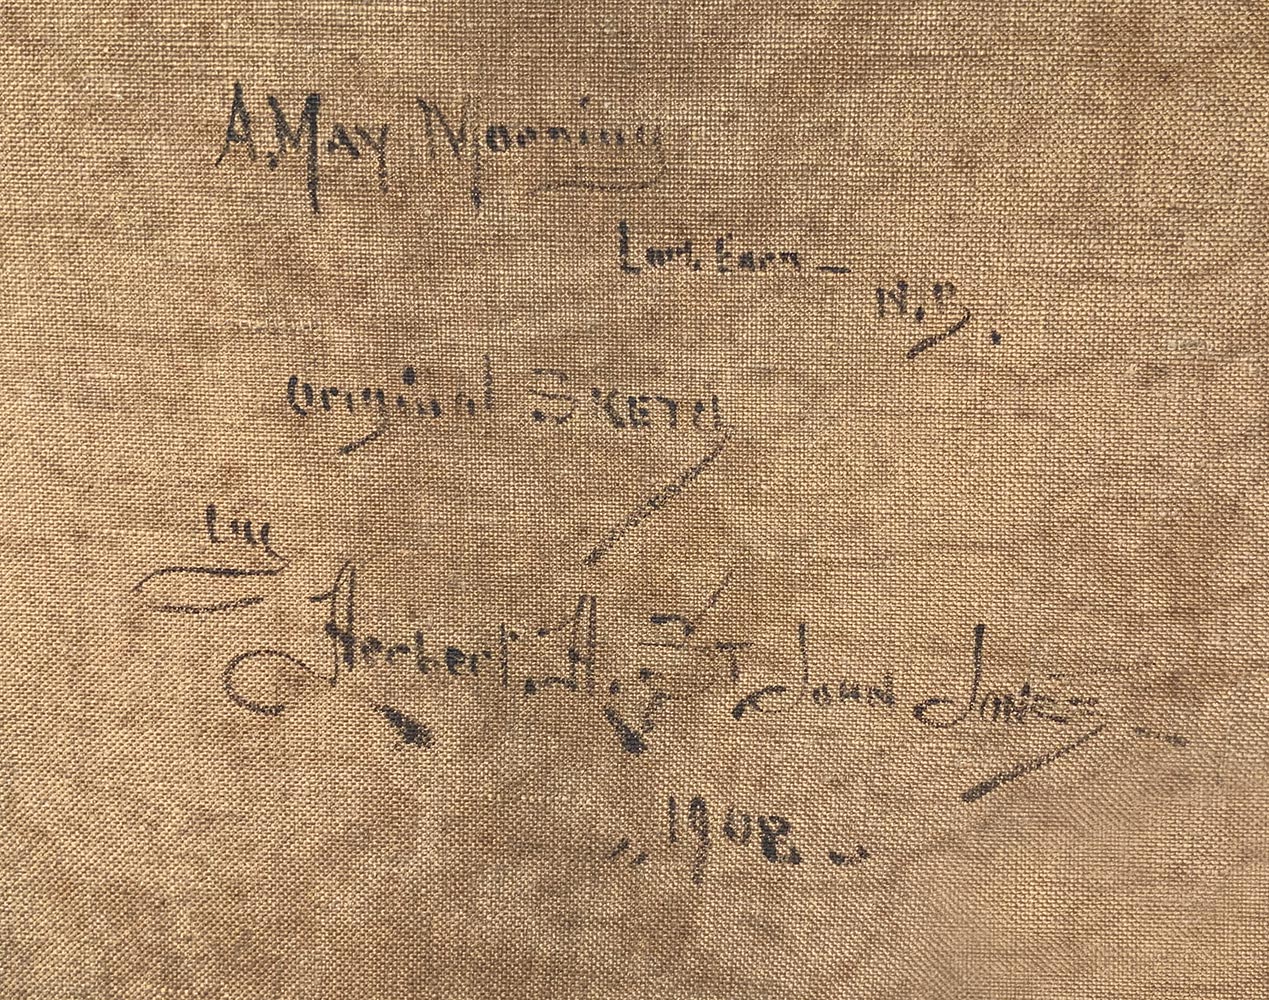 A. May Morning
Loch Earn —
N.B.
Original SKETCH
by
Herbert. A. St John Jones
1908.